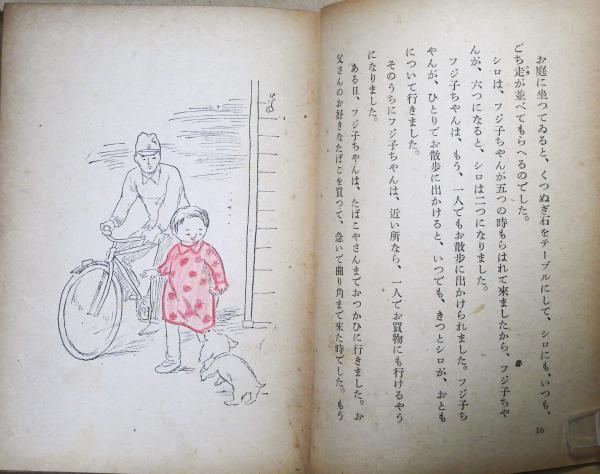 お庭に坐つてゐると、くつぬぎ石をテーブルにして、シロにも、いつも、
ごち走が並べてもらへるのでした。
シロは、フジ子ちやんが五つの時もらはれて來ましたから、フジ子ちや
んが、六つになると、シロは二つになりました。
フジ子ちやんは、もう、一人でもお散歩に出かけられました。フジ子ち
やんが、ひとりでお散歩に出かけると、いつでも、きつとシロが、おとも
について行きました。
そのうちにフジ子ちやんは、近い所なら、一人でお買物にも行けるやう
になりました。
ある日、フジ子ちやんは、たばこやさんまでおつかひに行きました。お
父さんのお好きなたばこを買つて、急いで曲り角まで來た時でした。もう
16